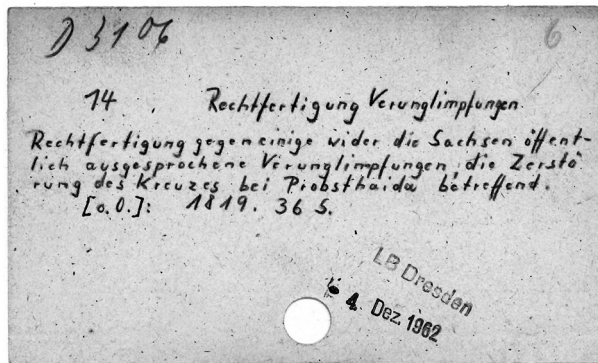 D 3106
6
14 Rechtfertigung Verunglimpfungen.
Rechtfertigung gegen einige wider die Sachsen öffent-
lich ausgesprochene Verunglimpfungen, die Zerstö
rung des Kreuzes bei Probsthaida betreffend.
[o.O.]: 1819. 36 S.
LB Dresden
4. Dez. 1962